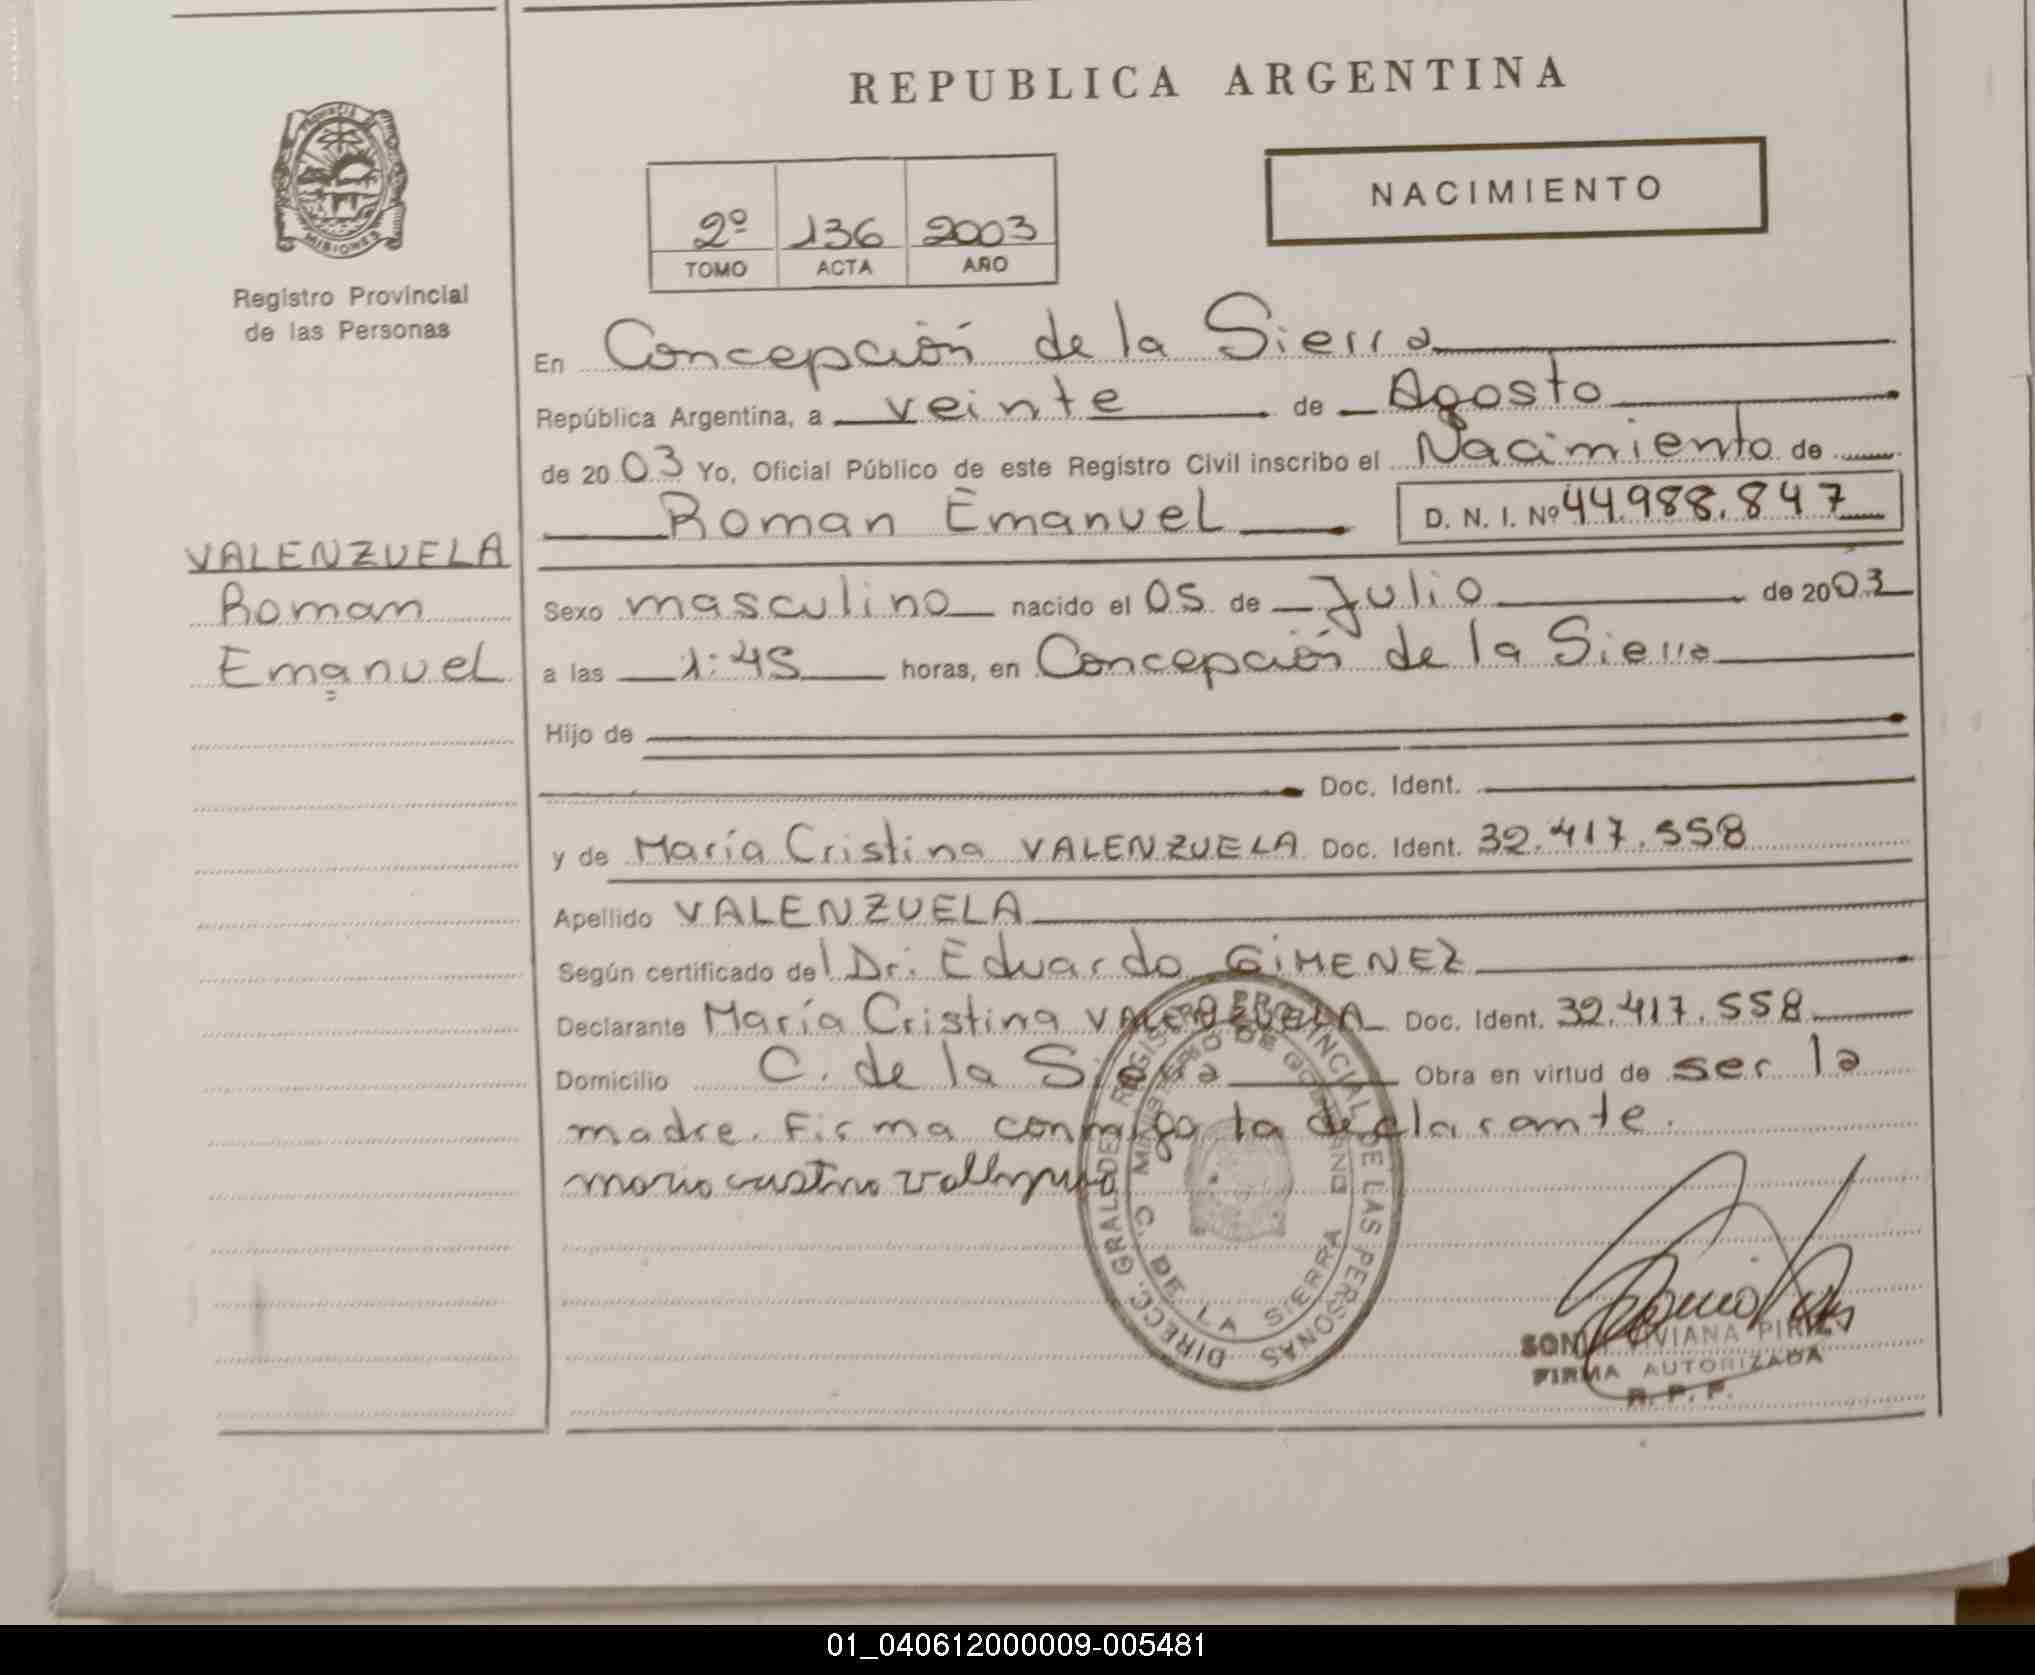 REPUBLICA ARGENTINA
PROVINCIA DE
MISIONES
Registro Provincial
de las Personas
2º 136 2003
TOMO ACTA AÑO
NACIMIENTO
En Concepción de la Sierra
República Argentina, a veinte de Agosto
de 2003 Yo, Oficial Público de este Registro Civil inscribo el Nacimiento de
Roman Emanuel D. N. I. Nº 44.988.847
VALENZUELA
Roman
Emanuel
Sexo masculino nacido el 05 de Julio de 2003
a las 1:45 horas, en Concepción de la Sierra
Hijo de
Doc. Ident.
y de María Cristina VALENZUELA Doc. Ident. 32.417.558
Apellido VALENZUELA
Según certificado del Dr. Eduardo GIMENEZ
Declarante María Cristina VALENZUELA Doc. Ident. 32.417.558
Domicilio C. de la Sierra Obra en virtud de ser la
madre. Firma conmigo la declarante.
DIRECC. GRAL. DEL REGISTRO PROVINCIAL DE LAS PERSONAS
MINISTERIO DE GOBIERNO
C. DE LA SIERRA
SONIA VIVIANA
FIRMA AUTORIZADA
R. P. P.
01_040612000009-005481